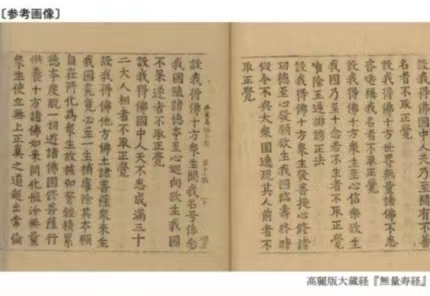 〔参考画像〕
設我得佛國中人天乃至聞有不善
名者不取正覺
設我得佛十方世界無量諸佛不悉
咨嗟稱我名者不取正覺
設我得佛十方衆生至心信樂欲生
我國乃至十念若不生者不取正覺
唯除五逆誹謗正法
設我得佛十方衆生發菩提心修諸
功德至心發願欲生我國臨壽終時
假令不與大衆圍遶現其人前者不
取正覺
設我得佛十方衆生聞我名号係念
我國殖諸德本至心迴向欲生我國
不果遂者不取正覺
設我得佛國中人天不悉成滿三十
二大人相者不取正覺
設我得佛他方佛土諸菩薩衆來生
我國究竟必至一生補處除其本願
自在所化爲衆生故被弘誓鎧積累
德本度脫一切遊諸佛國修菩薩行
供養十方諸佛如來開化恒沙無量
衆生使立無上正真之道超出常倫
高麗版大蔵経『無量寿経』